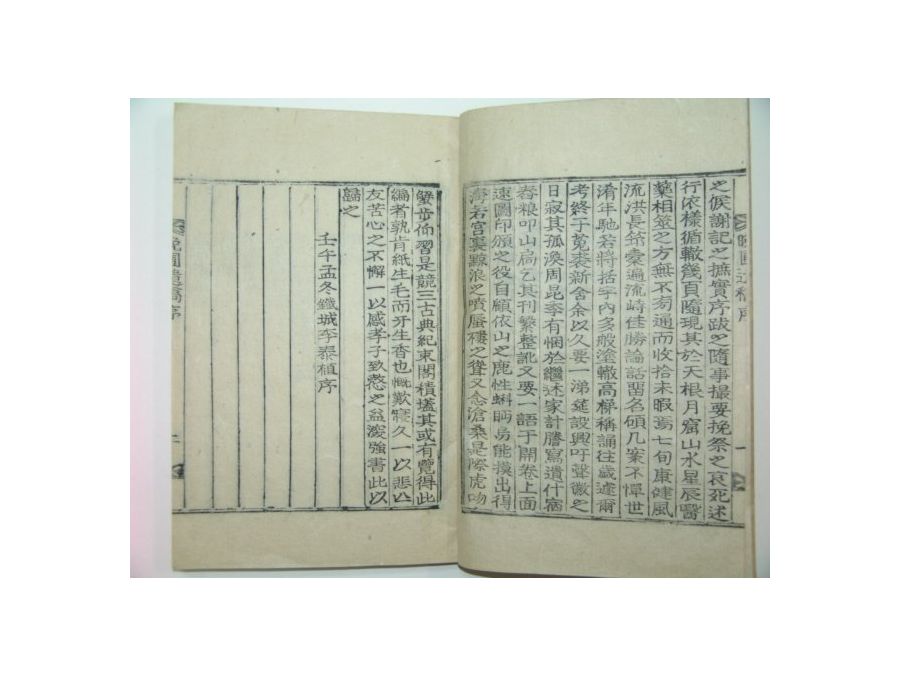 之候謝記之摭實序跋之隨事撮要挽祭之哀死述
行依樣循轍幾自隨現其於天根月窟山水星辰醫
藥相筮之方無不旁通而收拾未暇焉七旬康健風
流洪長筇橐遍流峙佳勝論話留名碩几案不憚世
淆年馳若將括宇內多般塗轍高梯稱誦往歲遽爾
考終于菟裘新舍余以久要一涕筵設興吁聲徽之
日寂其孤渙周昆季有悃於繼述家計謄寫遺什宿
舂粮叩山扃乞其刊繁整訛又要一語于開卷上面
速圖印頒之役自顧依山之鹿性蝌蚪易能摸出得
海若宮裏黥浪之噴蜃樓之聳又念滄桑是際虎吻
蠁步向習是競三古典紀束閣積壒其或有覽得此
編者孰肯紙生毛而牙生香也慨歎寢久一以悲亡
友苦心之不懈一以感孝子致慤之益深強書此以
歸之
壬午孟冬鐵城李泰植序
晩圃遺稿序
二
晩圃遺稿序
一